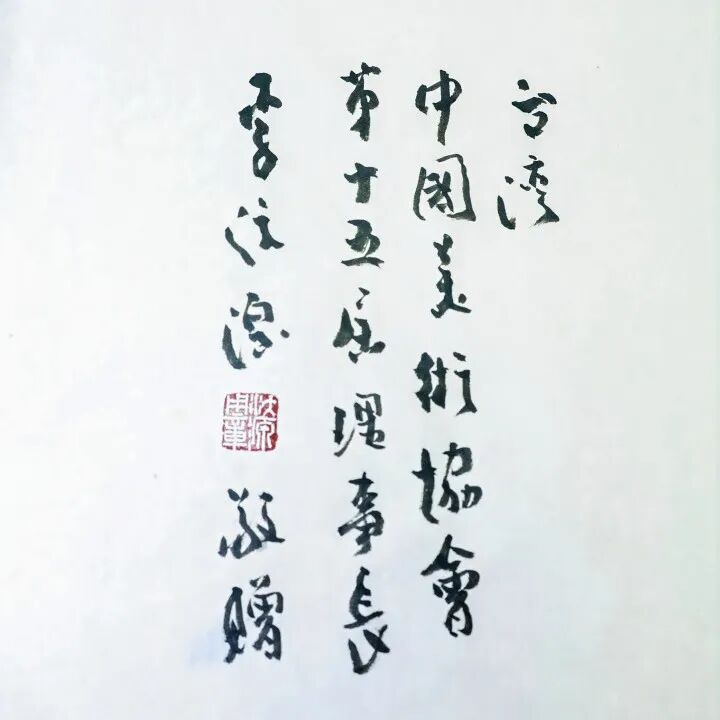 台湾
中國美術協會
第十五屆理事長
李沃源
沃源
敬贈